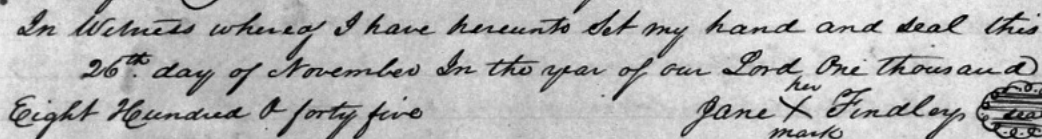 In Witness whereof I have hereunto Set my hand and seal this
26th. day of November In the year of our Lord One thousand
Eight Hundred & forty five Jane her X mark Findley seal